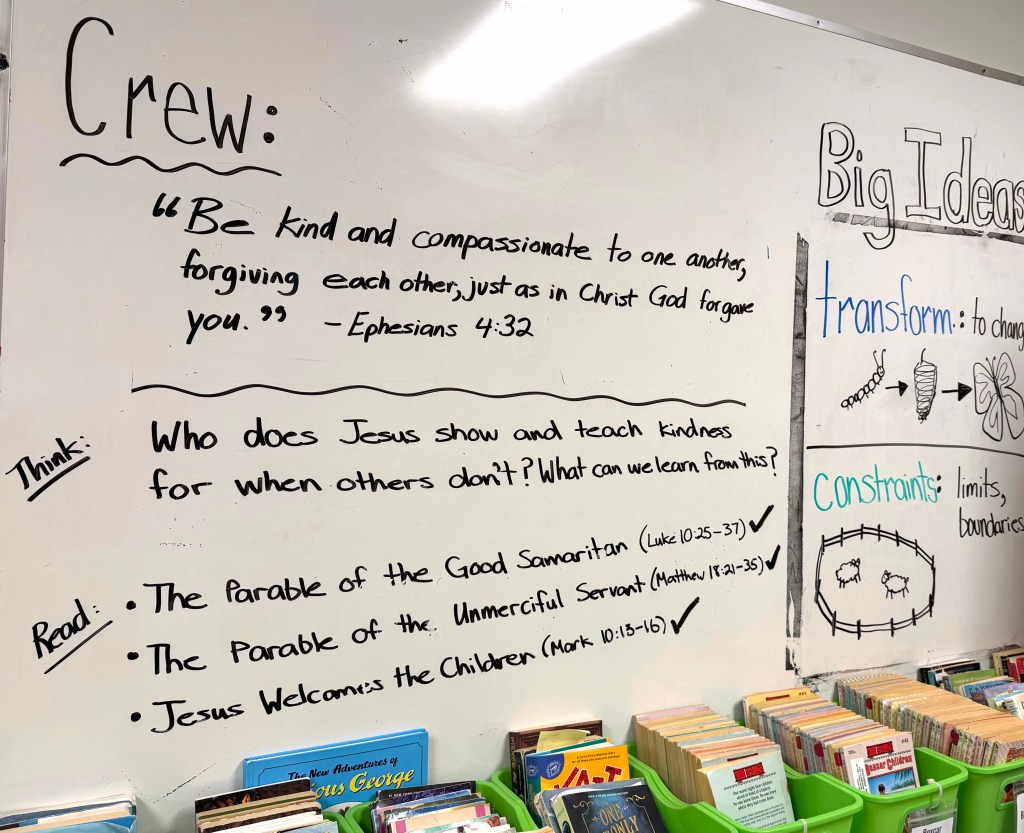 Crew:
“Be kind and compassionate to one another,
forgiving each other, just as in Christ God forgave
you.” – Ephesians 4:32
Think:
Who does Jesus show and teach kindness
for when others don't? What can we learn from this?
Read:
• The Parable of the Good Samaritan (Luke 10:25-37) ✓
• The Parable of the Unmerciful Servant (Matthew 18:21-35) ✓
• Jesus Welcomes the Children (Mark 10:13-16) ✓
Big Ideas
transform: to chang
constraints: limits,
boundaries
The New Adventures of
ous George
ONE
ONLY
Children